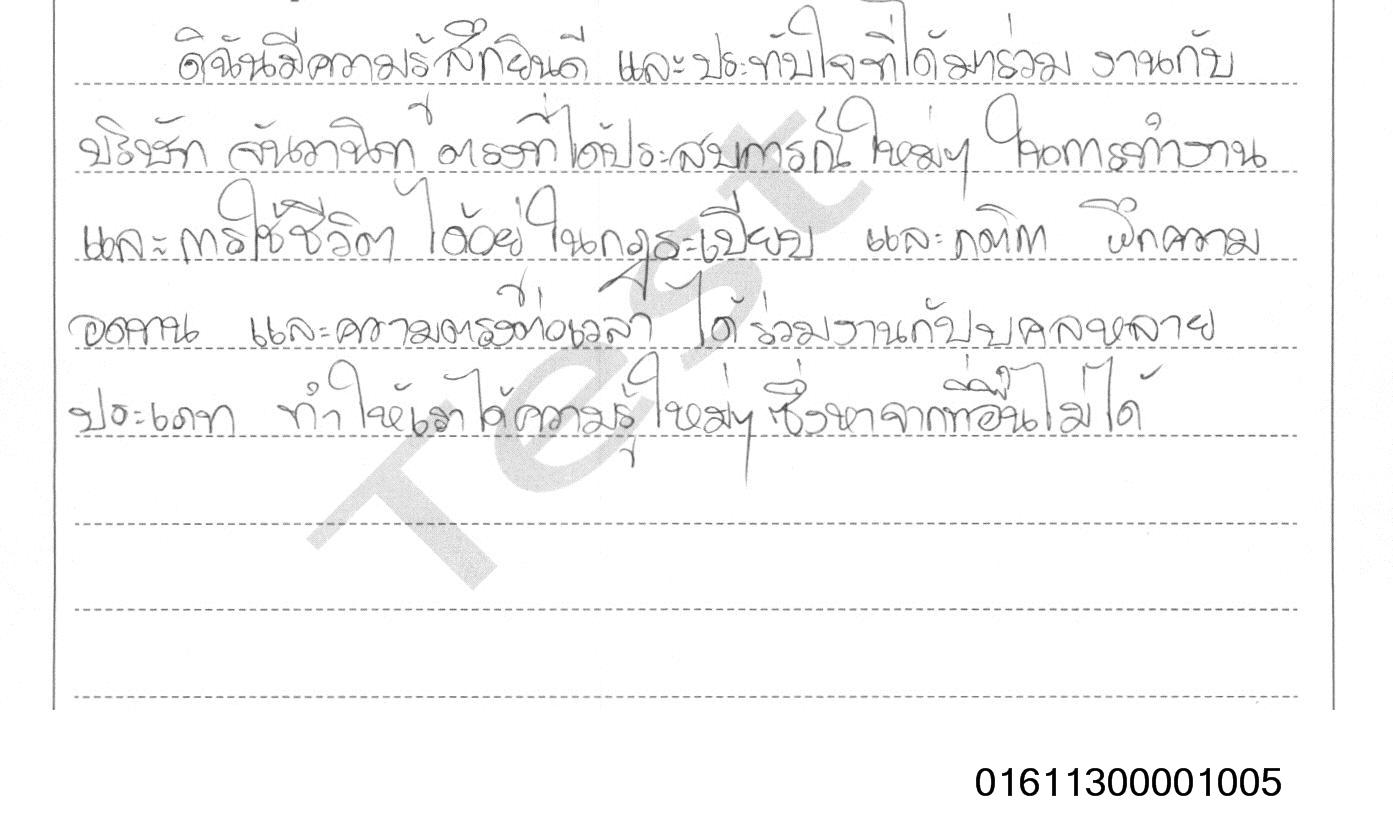 ดิฉันมีความรู้สึกยินดี และประทับใจที่ได้มาร่วม งานกับ
บริษัท จันวานิชย์ ตรงที่ได้ประสบการณ์ใหม่ๆ ในการทำงาน
และการใช้ชีวิต ได้อยู่ในกฎระเบียบ และกติกา ฝึกความ
อดทน และความตรงต่อเวลา ได้ร่วมงานกับบุคคลหลาย
ประเภท ทำให้เราได้ความรู้ใหม่ๆ ซึ่งหาจากที่อื่นไม่ได้
Test
01611300001005